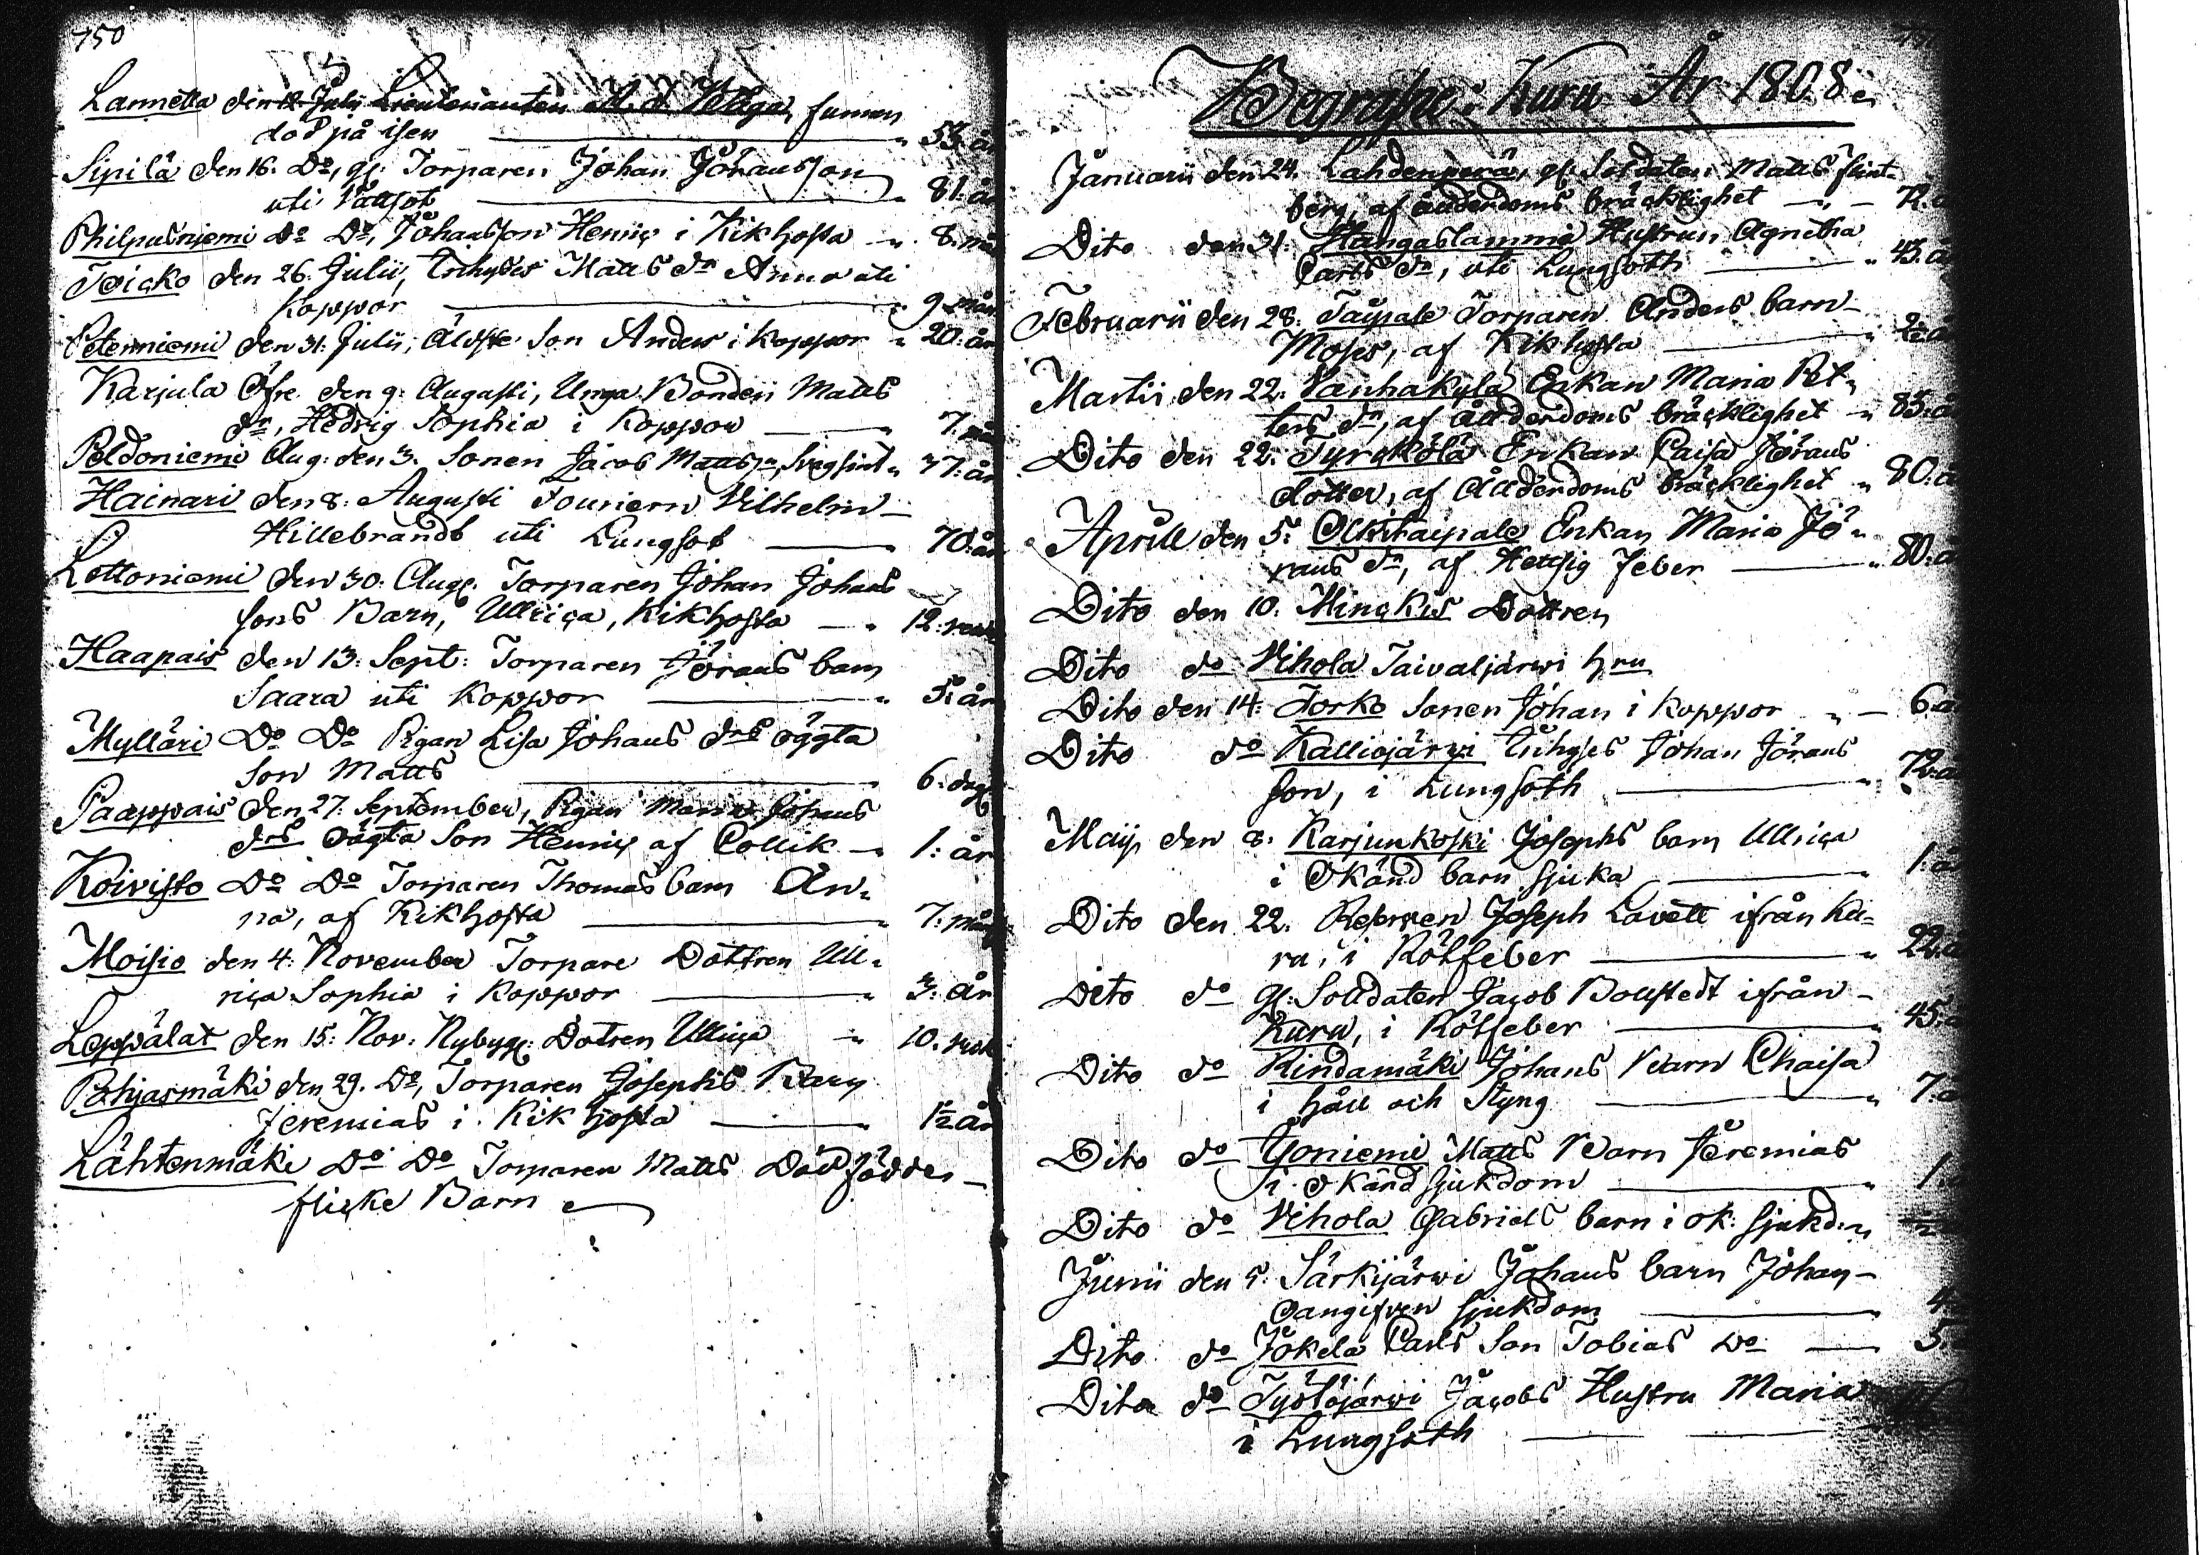 750
Lannetta den 12. Julii Lieutenanten funnen
död på isen 53. år
Sipilä den 16. Do, gl. Torparen Johan Jöransson
uti Vattsot 81. år
Philpusniemi Do Do, Johansson Henric i Kikhosta 8. må
Toicko den 26. Julii, Inhyses Matts dr Anna uti
Koppor 9. mån
Petenniemi den 31. Julii, Äldste Son Anders i Koppor 20. år
Karjula Öfre den 9. Augusti, Unga Bonden Matts
dr, Hedvig Sophia i Koppor 7. mån
Poldoniemi Aug. den 3. Sonen Jacob Mattsson, 37. år
Hainari den 8. Augusti Fouriern Vilhelm
Hillebrandt uti Lungsot 70. år
Lottoniemi den 30. Aug. Torparen Johan Johans
sons Barn, Ullrica, Kikhosta 12.
Haapais den 13. Sept: Torparen Jörans barn
Saara uti Koppor 5. år
Mylläri Do Do Pigan Lisa Johans drs oägta
Son Matts 6. dag
Paappais den 27. September, Pigan Maria Johans
drs oägta Son Henric af Collik 1: år
Koivisto Do Do Torparen Thomas barn An=
na, af Kikhosta 7. mån
Moisio den 4. November Torpare Dottren Ull=
rica Sophia i Koppor 3: år
Leppälat den 15: Nov. Nybygg: Dotren Ullrica 10.
Pohjasmäki den 29. Do, Torparen Josephs Barn
Jeremias i Kikhosta 1½ år
Lähtenmäki Do Do Torparen Matts Dödfödde
flicke Barn
Begrafne i Kuru År 1808
Januarii den 24. Lahdenperä, gl. Soldaten Matts flint=
berg, af ålderdoms bräcklighet 72. å
Dito den 31. Hangaslammi Hustrun Agnetha
Carls dr, uti Lungsoth 43. år
Februarii den 28. Taipale Torparen Anders barn
Moses, af Kikhosta 2½ å
Martii den 22. Vanhakylä Enkan Maria Pet=
ters dr, af ålderdoms bräcklighet 83. å
Dito den 22. Enkan Caisa Jörans
dotter, af Ålderdoms bräcklighet 80. å
Aprill den 5. Olkitaipale Enkan Maria Jö=
rans dr, af Hettsig feber 80. å
Dito den 10. Minckis Dottren
Dito do Vihola Taivaljärwi hru
Dito den 14. Torko Sonen Johan i Koppor 6. å
Dito do Kalliojärwi Inhyses Johan Jörans
son, i Lungsoth 72. å
Maij den 8. Karjunkoski Josephs barn Ullrica
i Okänd barn sjuka 1. å
Dito den 22. Joseph Lavett ifrån Ku=
ru, i Rötfeber 22. å
Dito do gl. Soldaten Jacob Bollstedt ifrån
Kuru, i Rötfeber 45. å
Dito do Rindamäki Johans Barn Chaisa
i håll och Styng 7. å
Dito do Yoniemi Matts Barn Jeremias
i Okänd sjukdom 1
Dito do Vihola Gabriels barn i ok: sjukd.
Junii den 5. Särkijärwi Johans barn Johan
oangifven sjukdom 4
Dito do Jokela Carls Son Tobias Do 5
Dito do Työlöjärwi Jacobs Hustru Maria
i Lungsoth